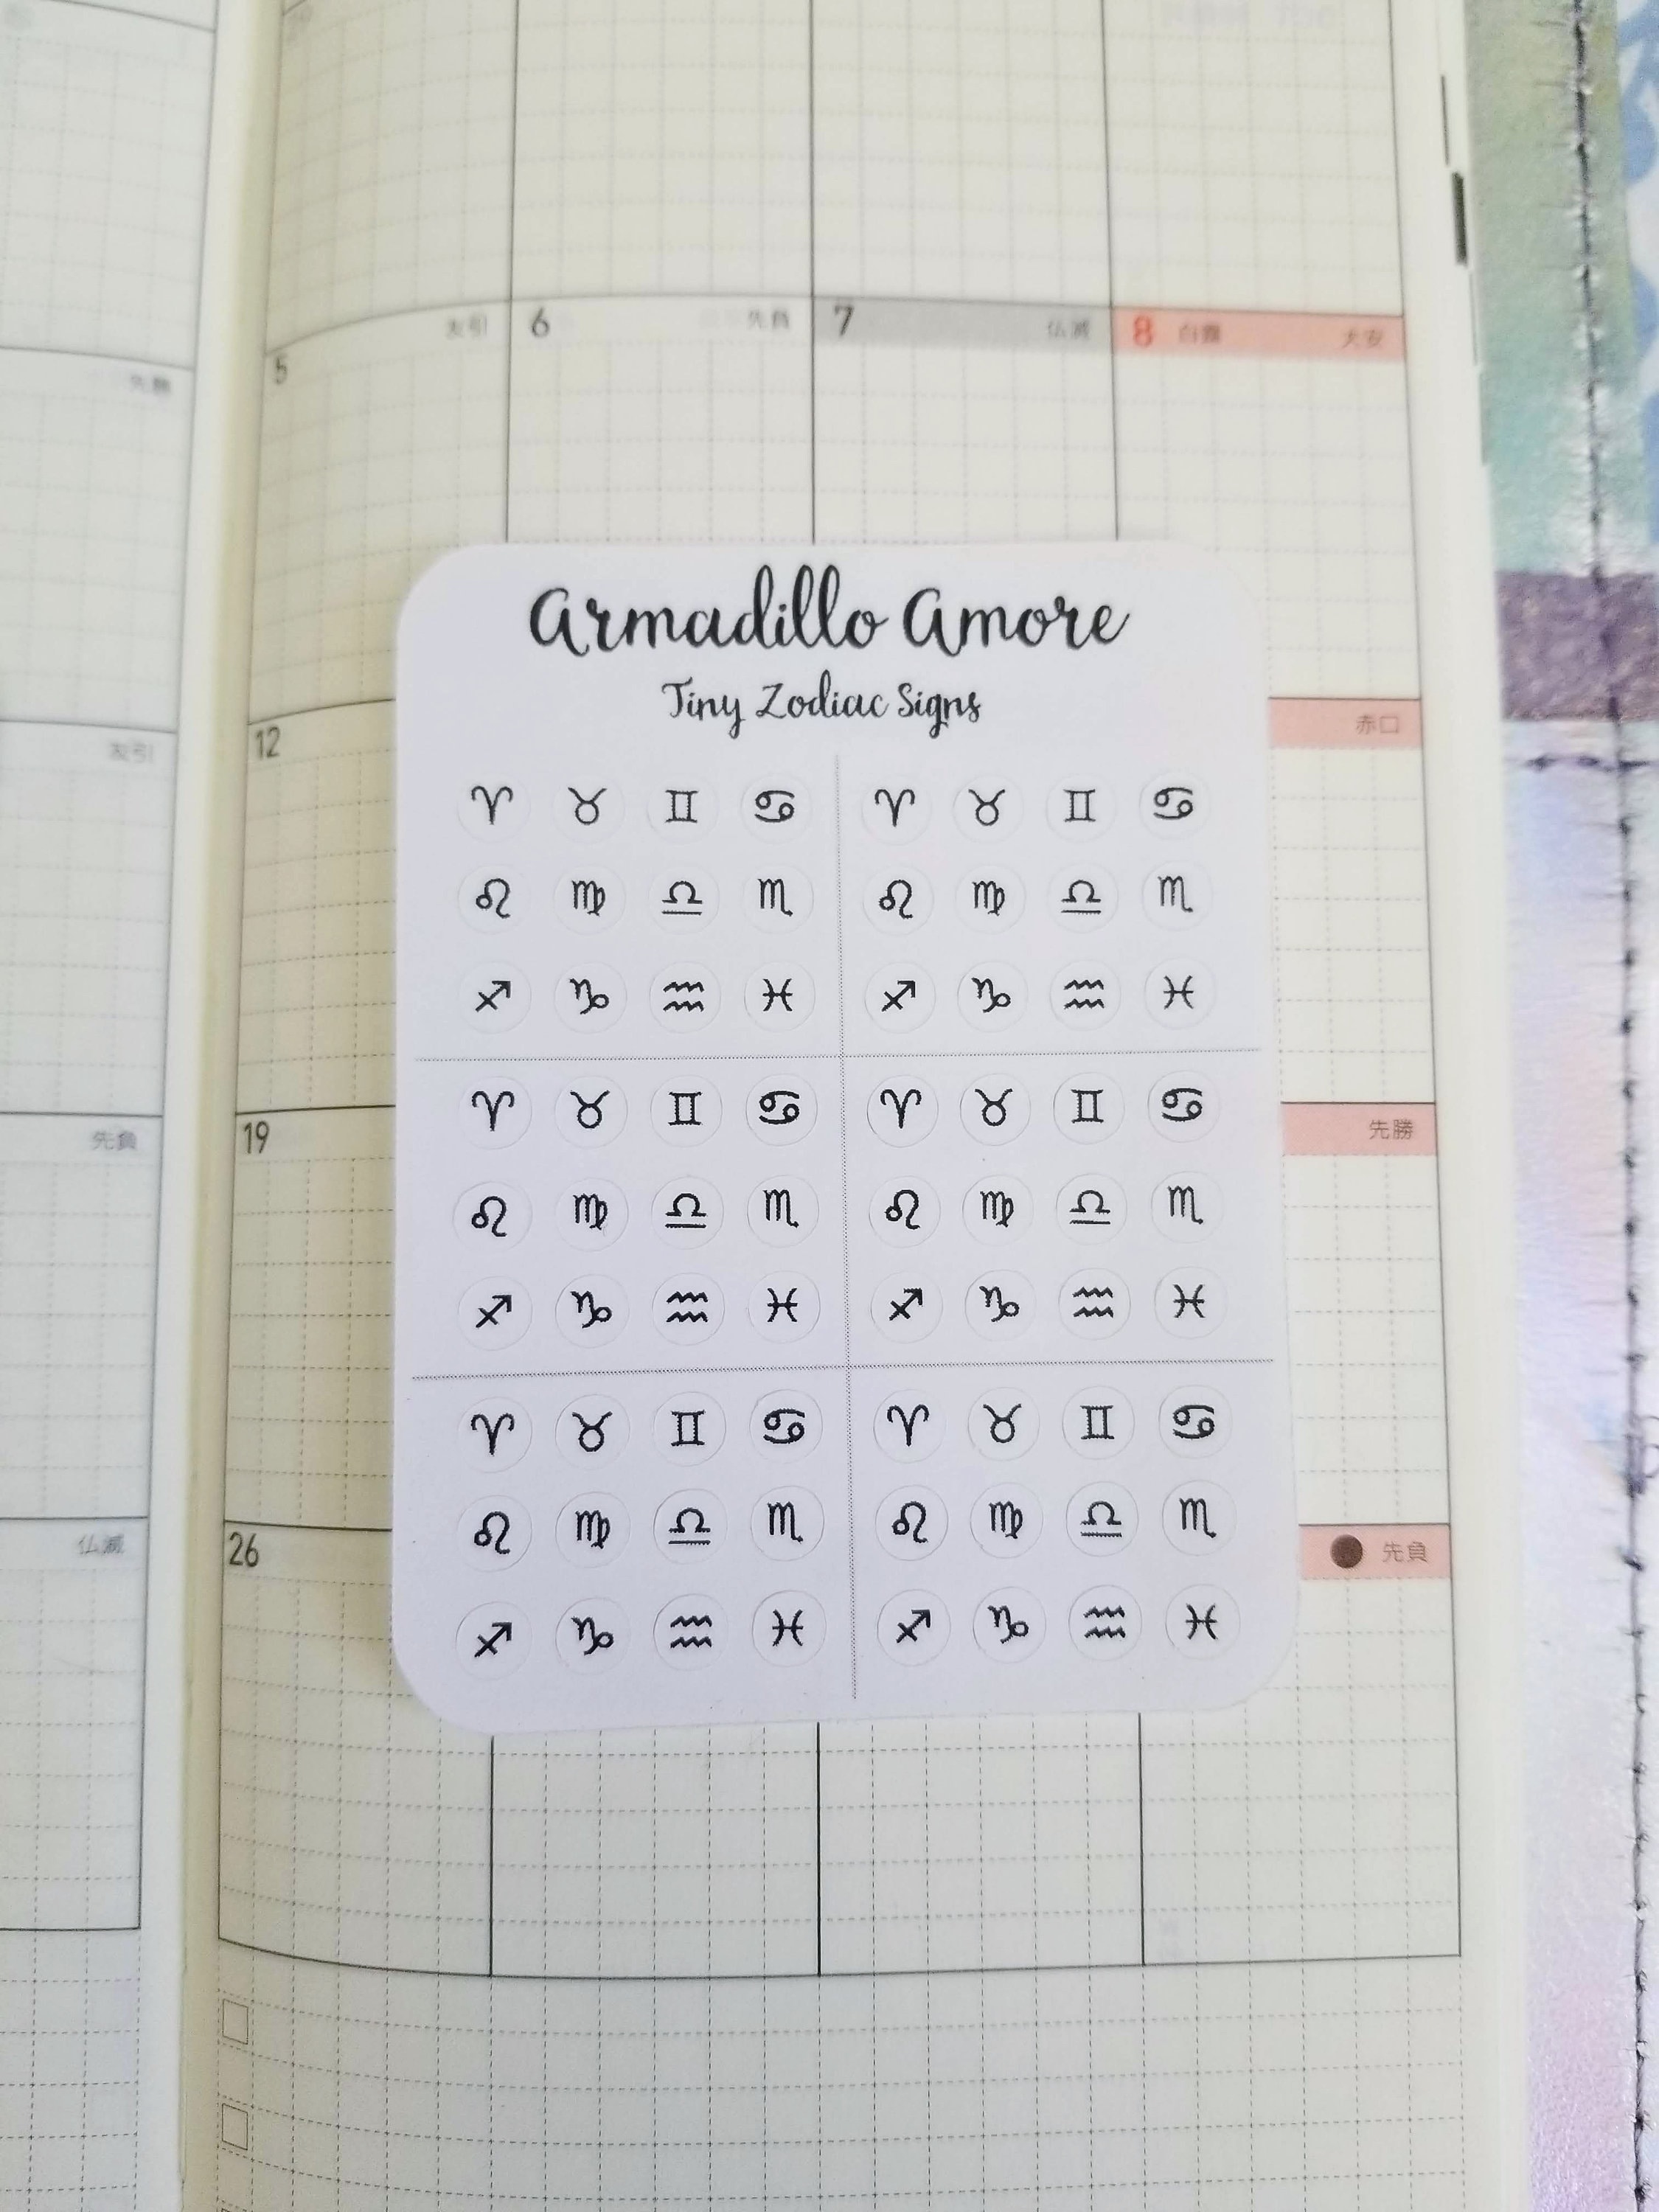 5 友引
6 先負
7 仏滅
8 白露 大安
先勝
Armadillo Amore
Tiny Zodiac Signs
友引
12
赤口
♈ ♉ ♊ ♋ ♈ ♉ ♊ ♋
♌ ♍ ♎ ♏ ♌ ♍ ♎ ♏
♐ ♑ ♒ ♓ ♐ ♑ ♒ ♓
先負
19
先勝
♈ ♉ ♊ ♋ ♈ ♉ ♊ ♋
♌ ♍ ♎ ♏ ♌ ♍ ♎ ♏
♐ ♑ ♒ ♓ ♐ ♑ ♒ ♓
仏滅
26
先負
♈ ♉ ♊ ♋ ♈ ♉ ♊ ♋
♌ ♍ ♎ ♏ ♌ ♍ ♎ ♏
♐ ♑ ♒ ♓ ♐ ♑ ♒ ♓